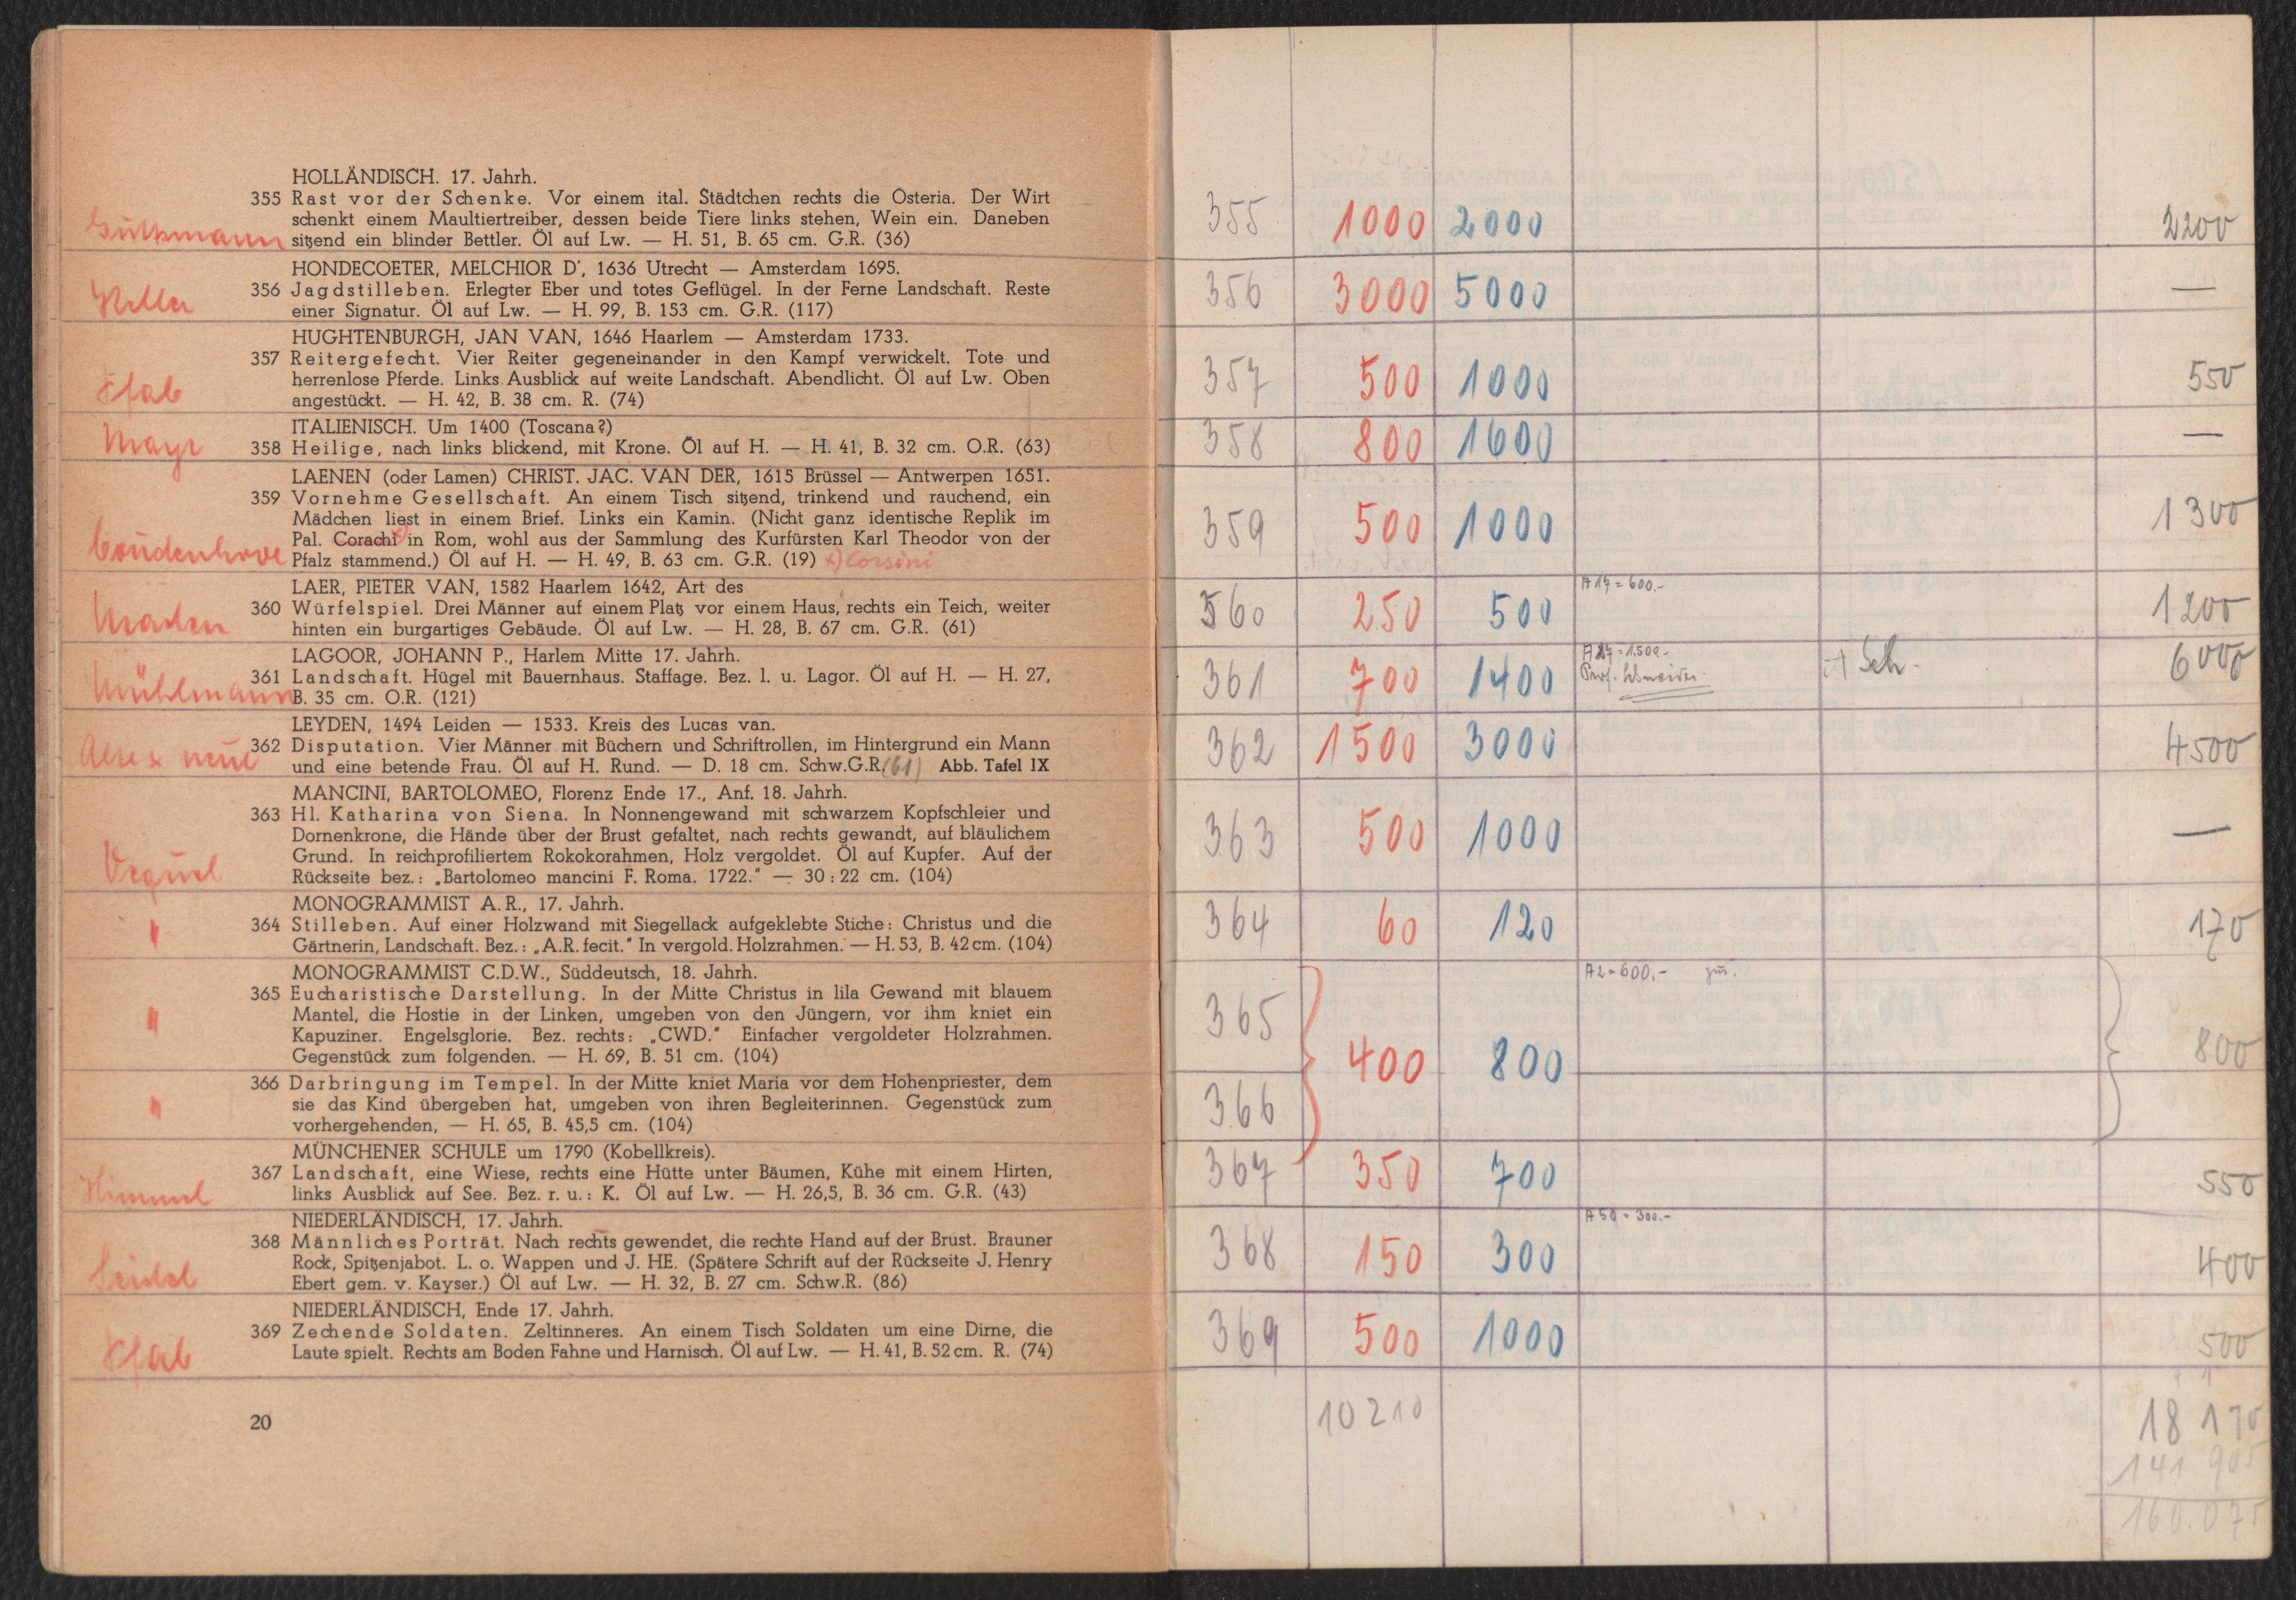 HOLLÄNDISCH. 17. Jahrh.
355 Rast vor der Schenke. Vor einem ital. Städtchen rechts die Osteria. Der Wirt
schenkt einem Maultiertreiber, dessen beide Tiere links stehen, Wein ein. Daneben
sitzend ein blinder Bettler. Öl auf Lw. — H. 51, B. 65 cm. G.R. (36)
HONDECOETER, MELCHIOR D', 1636 Utrecht — Amsterdam 1695.
356 Jagdstilleben. Erlegter Eber und totes Geflügel. In der Ferne Landschaft. Reste
einer Signatur. Öl auf Lw. — H. 99, B. 153 cm. G.R. (117)
HUGHTENBURGH, JAN VAN, 1646 Haarlem — Amsterdam 1733.
357 Reitergefecht. Vier Reiter gegeneinander in den Kampf verwickelt. Tote und
herrenlose Pferde. Links Ausblick auf weite Landschaft. Abendlicht. Öl auf Lw. Oben
Pfab angestückt. — H. 42, B. 38 cm. R. (74)
ITALIENISCH. Um 1400 (Toscana?)
Mayr 358 Heilige, nach links blickend, mit Krone. Öl auf H. — H. 41, B. 32 cm. O.R. (63)
LAENEN (oder Lamen) CHRIST. JAC. VAN DER, 1615 Brüssel — Antwerpen 1651.
359 Vornehme Gesellschaft. An einem Tisch sitzend, trinkend und rauchend, ein
Mädchen liest in einem Brief. Links ein Kamin. (Nicht ganz identische Replik im
Pal. Corachi x) in Rom, wohl aus der Sammlung des Kurfürsten Karl Theodor von der
Coudenhove Pfalz stammend.) Öl auf H. — H. 49, B. 63 cm. G.R. (19) x) Corsini
LAER, PIETER VAN, 1582 Haarlem 1642, Art des
360 Würfelspiel. Drei Männer auf einem Platz vor einem Haus, rechts ein Teich, weiter
hinten ein burgartiges Gebäude. Öl auf Lw. — H. 28, B. 67 cm. G.R. (61)
LAGOOR, JOHANN P., Harlem Mitte 17. Jahrh.
361 Landschaft. Hügel mit Bauernhaus. Staffage. Bez. l. u. Lagor. Öl auf H. — H. 27,
Mühlmann B. 35 cm. O.R. (121)
LEYDEN, 1494 Leiden — 1533. Kreis des Lucas van.
Alte & neue 362 Disputation. Vier Männer mit Büchern und Schriftrollen, im Hintergrund ein Mann
und eine betende Frau. Öl auf H. Rund. — D. 18 cm. Schw.G.R. (61) Abb. Tafel IX
MANCINI, BARTOLOMEO, Florenz Ende 17., Anf. 18. Jahrh.
363 Hl. Katharina von Siena. In Nonnengewand mit schwarzem Kopfschleier und
Dornenkrone, die Hände über der Brust gefaltet, nach rechts gewandt, auf bläulichem
Grund. In reichprofiliertem Rokokorahmen, Holz vergoldet. Öl auf Kupfer. Auf der
Vequel Rückseite bez.: „Bartolomeo mancini F. Roma. 1722." — 30 : 22 cm. (104)
MONOGRAMMIST A.R., 17. Jahrh.
" 364 Stilleben. Auf einer Holzwand mit Siegellack aufgeklebte Stiche: Christus und die
Gärtnerin, Landschaft. Bez.: „A.R. fecit." In vergold. Holzrahmen. — H. 53, B. 42 cm. (104)
MONOGRAMMIST C.D.W., Süddeutsch, 18. Jahrh.
365 Eucharistische Darstellung. In der Mitte Christus in lila Gewand mit blauem
" Mantel, die Hostie in der Linken, umgeben von den Jüngern, vor ihm kniet ein
Kapuziner. Engelsglorie. Bez. rechts: „CWD." Einfacher vergoldeter Holzrahmen.
Gegenstück zum folgenden. — H. 69, B. 51 cm. (104)
366 Darbringung im Tempel. In der Mitte kniet Maria vor dem Hohenpriester, dem
" sie das Kind übergeben hat, umgeben von ihren Begleiterinnen. Gegenstück zum
vorhergehenden, — H. 65, B. 45,5 cm. (104)
MÜNCHENER SCHULE um 1790 (Kobellkreis).
367 Landschaft, eine Wiese, rechts eine Hütte unter Bäumen, Kühe mit einem Hirten,
Himmel links Ausblick auf See. Bez. r. u.: K. Öl auf Lw. — H. 26,5, B. 36 cm. G.R. (43)
NIEDERLÄNDISCH, 17. Jahrh.
368 Männliches Porträt. Nach rechts gewendet, die rechte Hand auf der Brust. Brauner
Rock, Spitzenjabot. L. o. Wappen und J. HE. (Spätere Schrift auf der Rückseite J. Henry
Seidel Ebert gem. v. Kayser.) Öl auf Lw. — H. 32, B. 27 cm. Schw.R. (86)
NIEDERLÄNDISCH, Ende 17. Jahrh.
369 Zechende Soldaten. Zeltinneres. An einem Tisch Soldaten um eine Dirne, die
Pfab Laute spielt. Rechts am Boden Fahne und Harnisch. Öl auf Lw. — H. 41, B. 52 cm. R. (74)
20
355 1000 2000 2200
356 3000 5000 —
357 500 1000 550
358 800 1600 —
359 500 1000 1300
A 17 = 600.-
360 250 500 1200
A 27 = 1.500.-
361 700 1400 Prof. Schneider + Sch. 6000
362 1500 3000 4500
363 500 1000 —
364 60 120 170
A 2 = 600.-
365
400 800 800
366
367 350 700 550
A 50 = 300.-
368 150 300 400
369 500 1000 500
10210 18 170
141 905
160.075